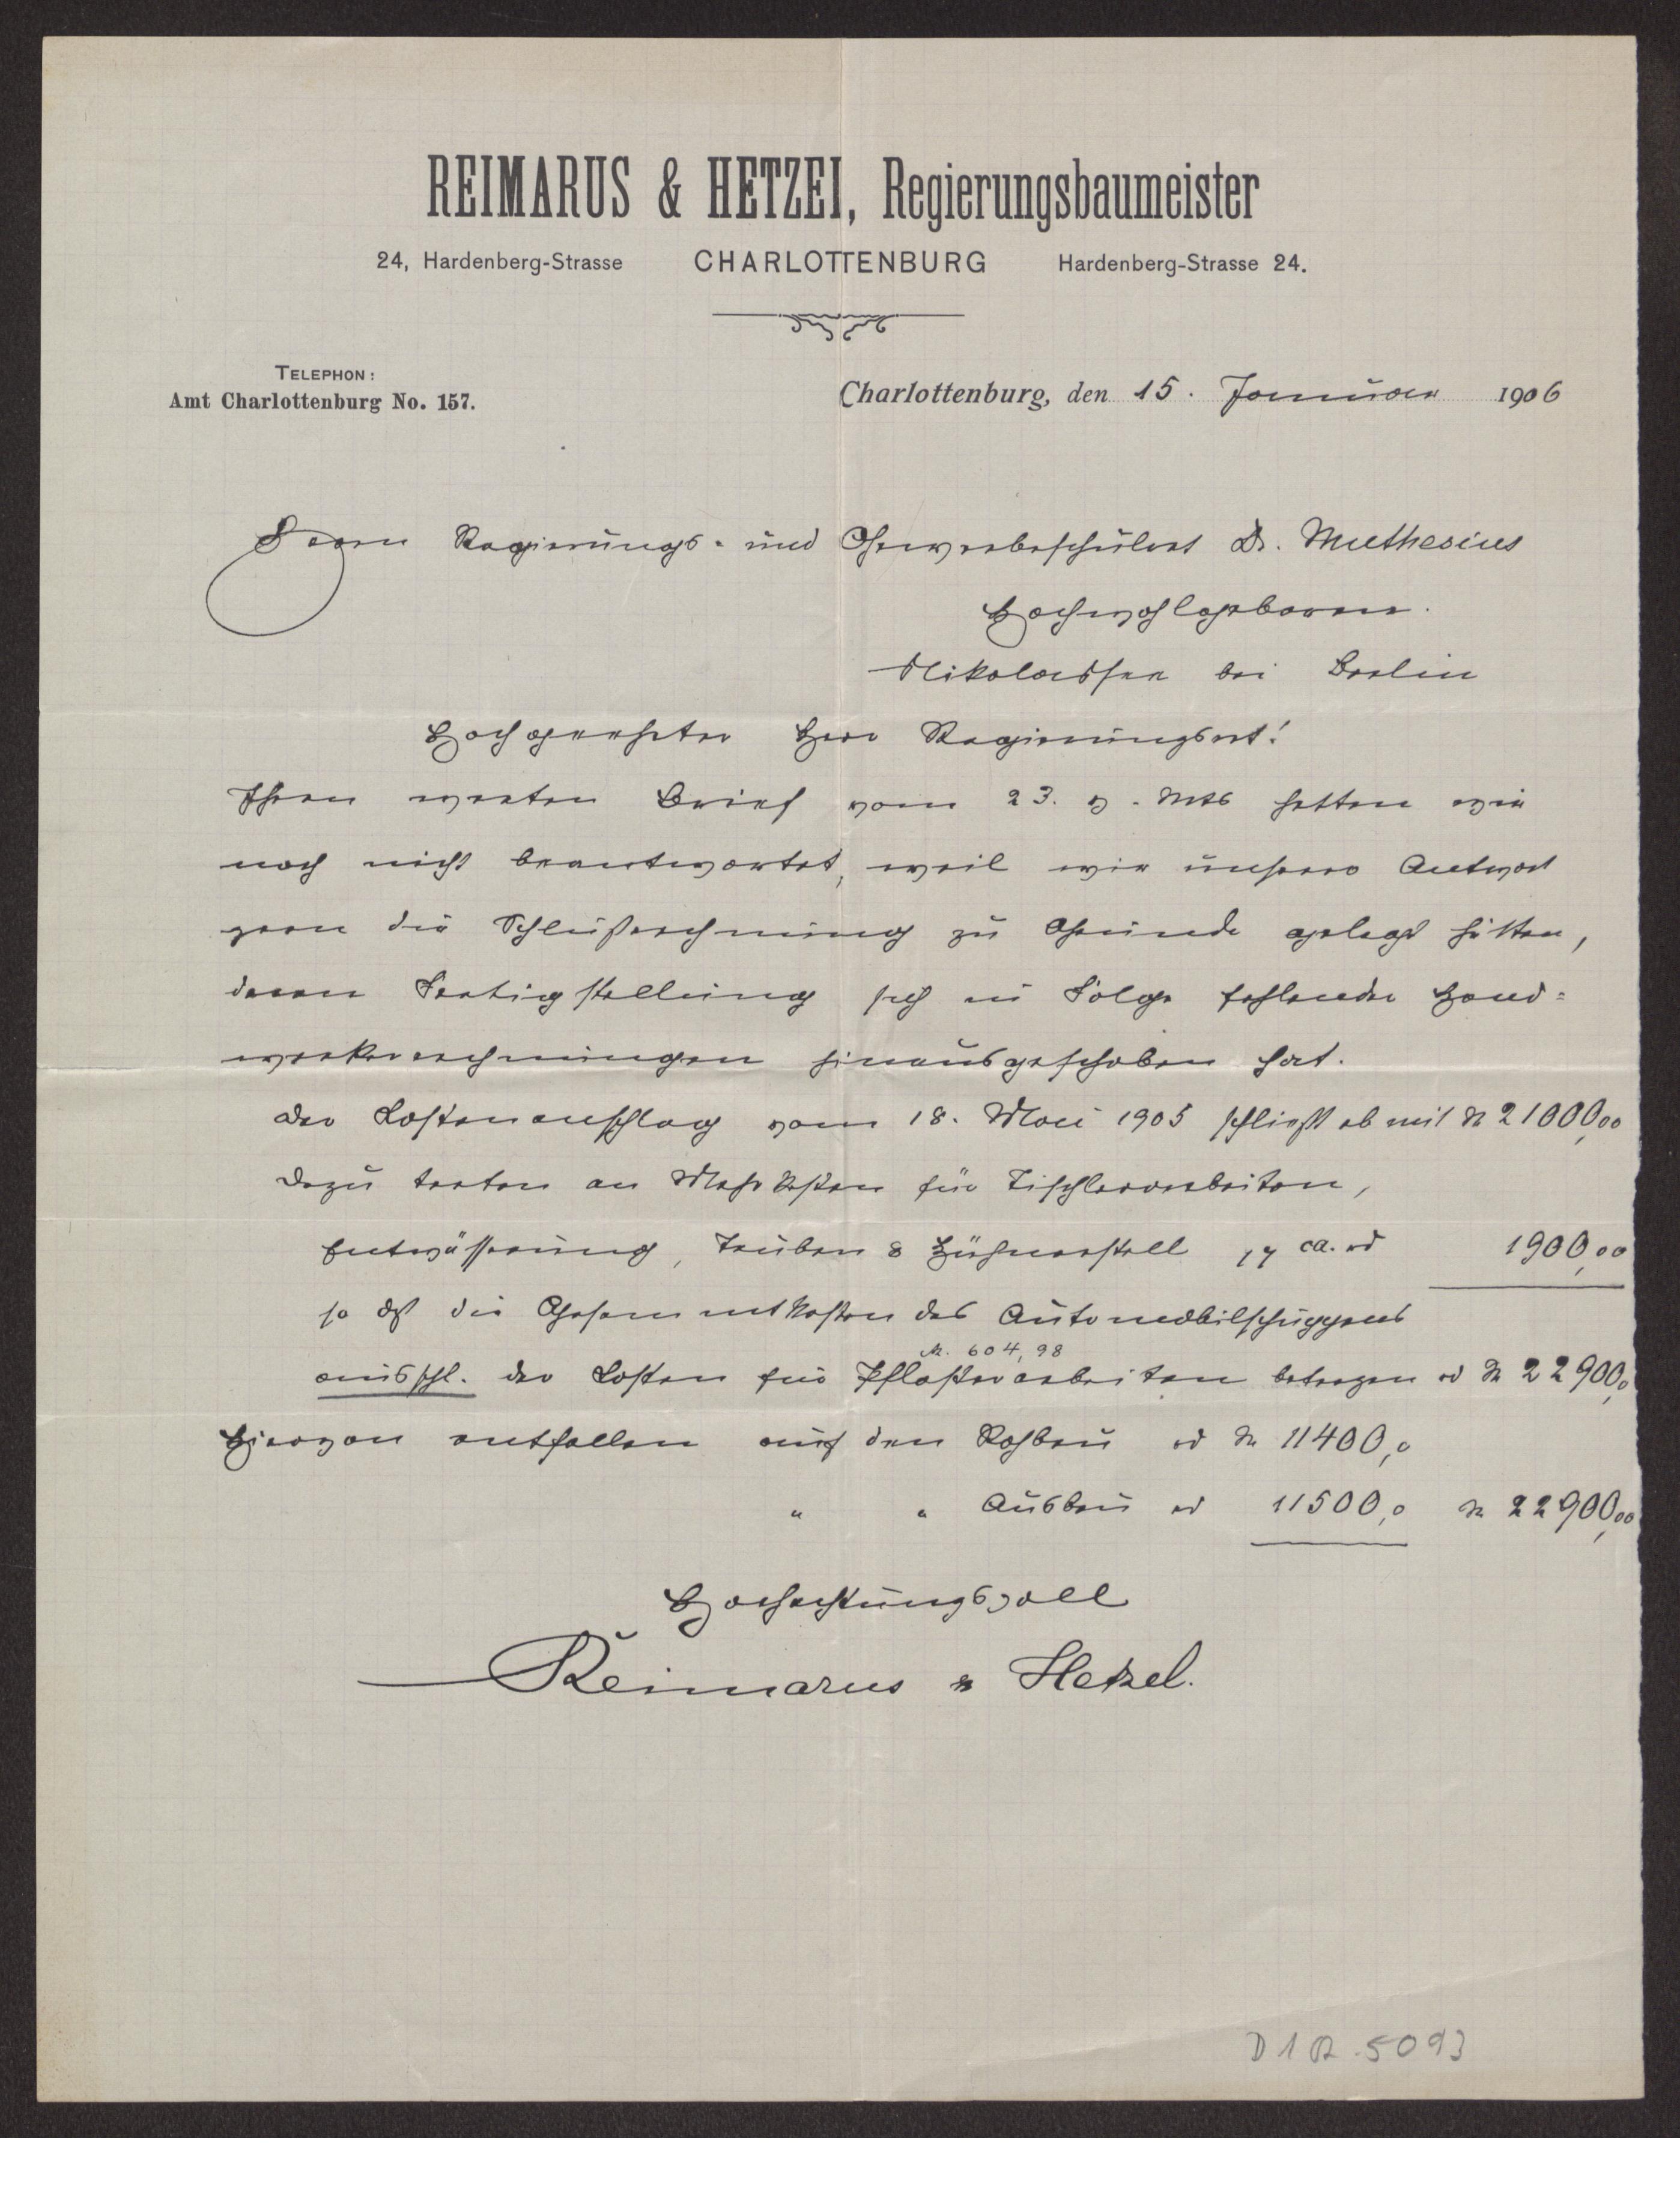 REIMARUS & HETZEL, Regierungsbaumeister
24, Hardenberg-Strasse CHARLOTTENBURG Hardenberg-Strasse 24.
TELEPHON:
Amt Charlottenburg No. 157.
Charlottenburg, den 15. Januar 1906
Herrn Regierungs- und Gewerbeschulrat Dr. Muthesius
Hochwohlgeboren.
Nikolassee bei Berlin
Hochgeehrter Herr Regierungsrat!
Ihren werten Brief vom 23. v. Mts hatten wir
noch nicht beantwortet, weil wir unserer Antwort
gern die Schlußrechnung zu Grunde gelegt hätten,
deren Fertigstellung sich in Folge fehlender Hand-
werkerrechnungen hinausgeschoben hat.
Der Kostenanschlag vom 18. Mai 1905 schließt ab mit M 21000,00
Dazu treten an Mehrkosten für Tischlerarbeiten,
Entwässerung, Tauben & Hühnerstall ca. rd 1900,00
so dß die Gesammtkosten des Automobilschuppens
M. 604,98
ausschl. der Kosten für Pflasterarbeiten betragen rd M 22900,0
Hiervon entfallen auf den Rohbau rd M 11400,0
" " Ausbau rd 11500,0 M 22900,00
Hochachtungsvoll
Reimarus & Hetzel.
D1A.5093